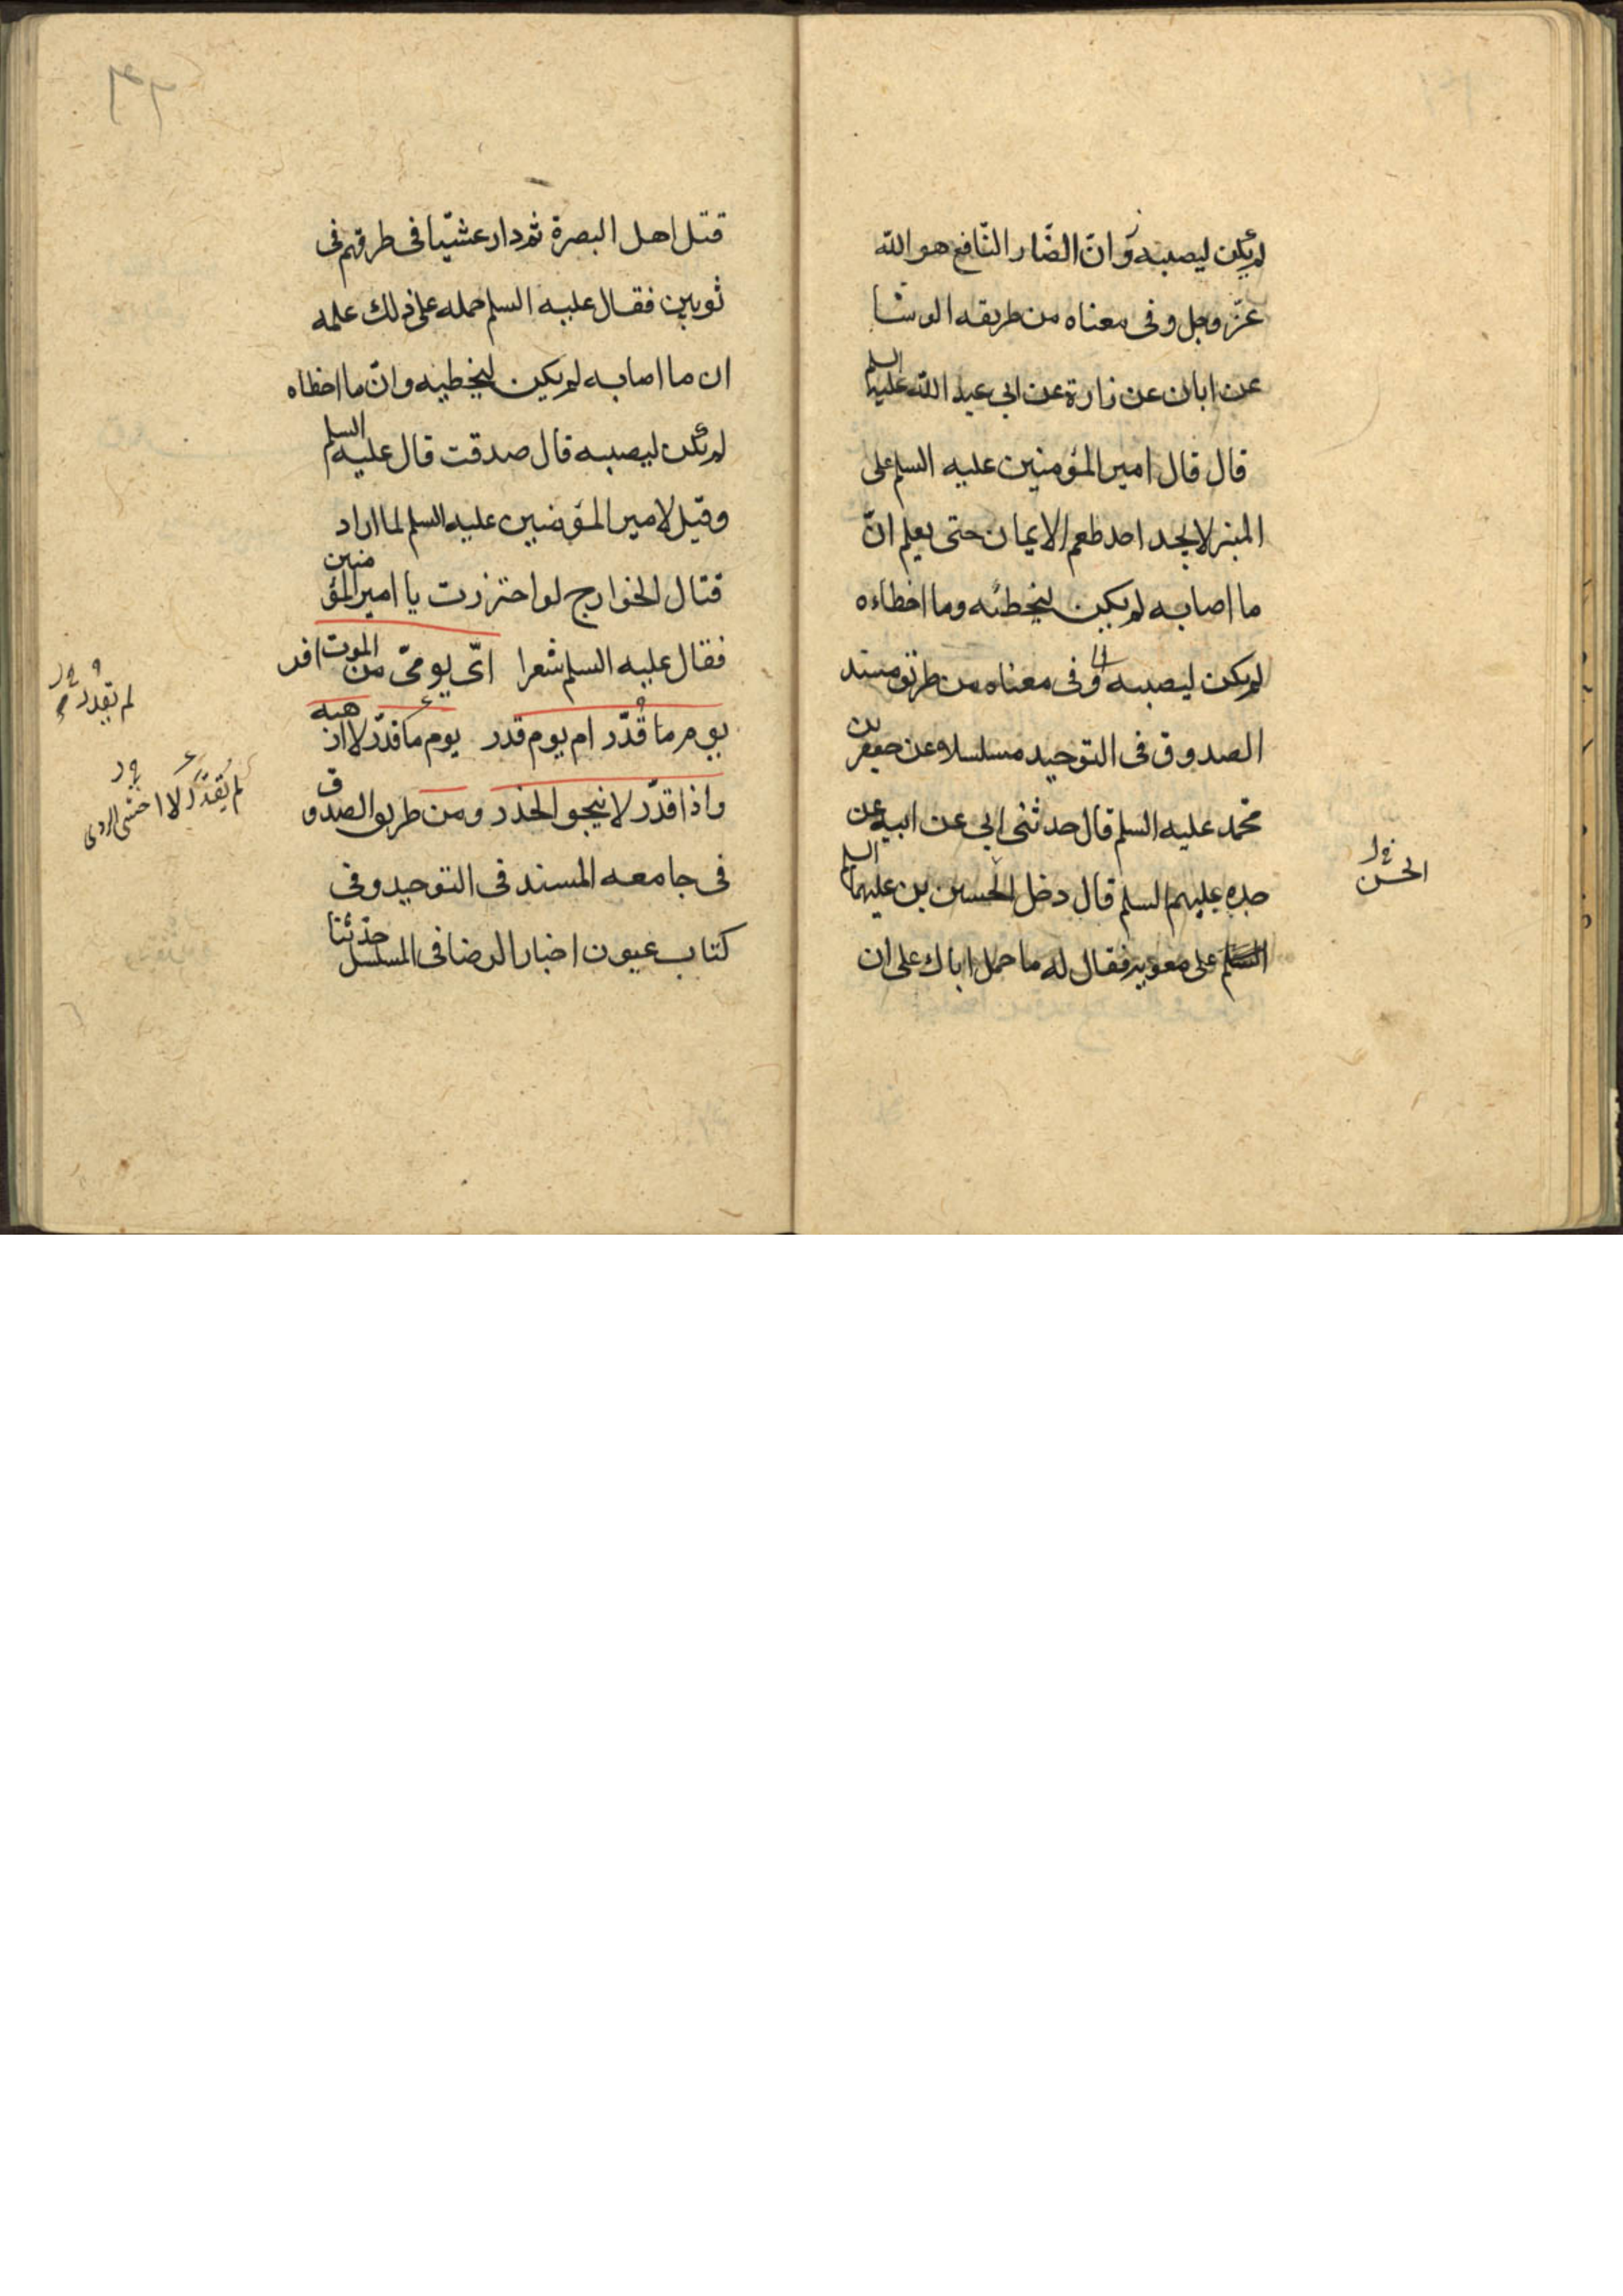 لم يكن ليصيبه وانّ الضّار النّافع هو الله
عزّ وجل وفى معناه من طريقه الوشا
عن ابان عن زرارة عن ابى عبد الله عليه السلم
قال قال امير المؤمنين عليه السلم على
المنبر لا يجد احد طعم الايمان حتى يعلم انّ
ما اصابه لم يكن ليخطئه وما اخطاءه
لم يكن ليصيبه وفى معناه من طريق مسند
الصدوق فى التوحيد مسلسلا عن جعفر بن
محمّد عليه السلم قال حدثنى ابى عن ابيه عن
جده عليهم السلم قال دخل الحسين بن عليهما السلم
السّلم على معوية فقال له ما حمل اباك على ان
الحسن
قتل اهل البصرة ثم دار عشيّا فى طرقهم فى
ثوبين فقال عليه السلم حمله على ذلك علمه
ان ما اصابه لم يكن ليخطيه وانّ ما اخطاه
لم يكن ليصيبه قال صدقت قال عليه السلم
وقيل لامير المؤمنين عليه السلم لما اراد
قتال الخوارج لو احترزت يا امير المؤمنين
فقال عليه السلم شعرا اىّ يومىّ من الموت افر
يوم ما قُدّر ام يوم قدر يوم ما قدّر لا ارهبه
واذا قدّر لا ينجو الحذر ومن طريق الصدوق
فى جامعه المسند فى التوحيد وفى
كتاب عيون اخبار الرضا فى المسلسل حدّثنا
لم يقدر
لم يُقدَّر لا اخشى الردى